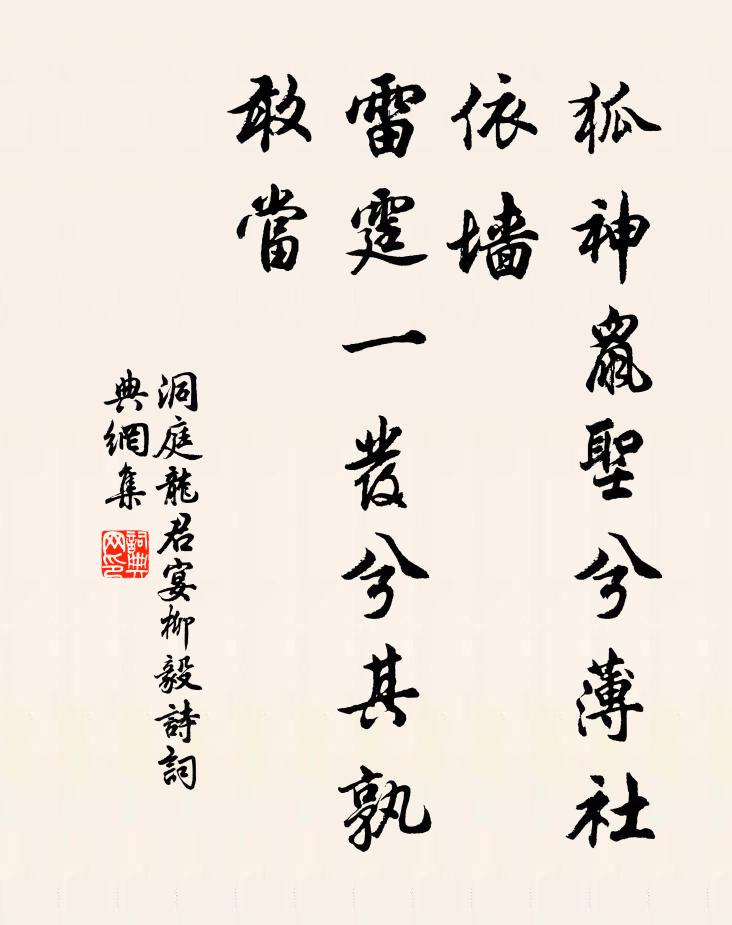 狐神鼠聖兮薄社
依墻
雷霆一發兮其孰
敢當
洞庭龍君宴柳毅詩詞
典網集
詞典
网印